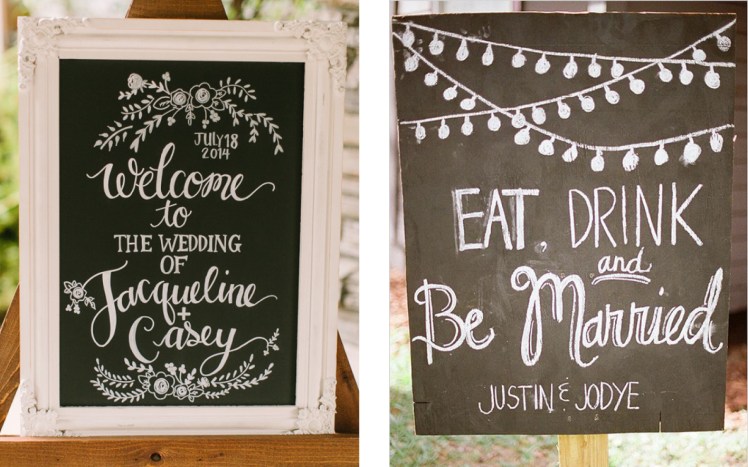 JULY 18
2014
Welcome
to
THE WEDDING
OF
Jacqueline
+
Casey
EAT, DRINK
and
Be Married
JUSTIN & JODYE